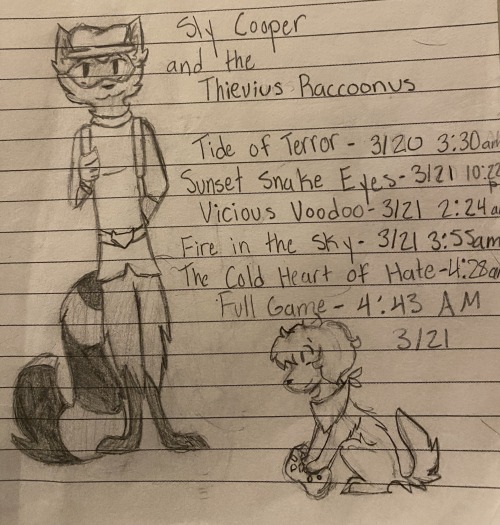 Sly Cooper
and the
Thievius Raccoonus
Tide of Terror - 3/20 3:30am
Sunset Snake Eyes - 3/21 10:22
Vicious Voodoo - 3/21 2:24a
Fire in the Sky - 3/21 3:55am
The Cold Heart of Hate - 4:28am
Full Game - 4:43 AM
3/21